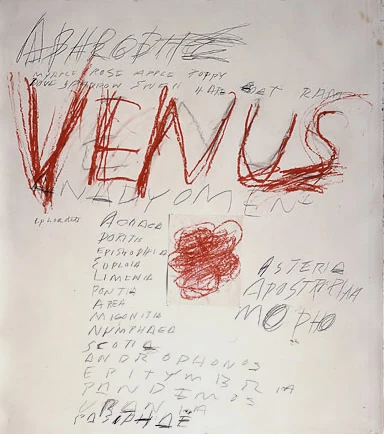 APHRODITE
MYRTLE ROSE APPLE POPPY
DOVE SPARROW SWAN HARE RAM
VENUS
ANADYOMENE
ACRAEA
DORITIS
EPISTROPHIA
EUPLOIA
LIMENIA
PONTIA
AREA
MIGONITIS
NUMPHAEA
SCOTIA
ANDROPHONOS
EPITYMBRIA
PANDEMOS
URANIA
PASIPHAE
ASTERIA
APOSTROPHIA
MOPHO